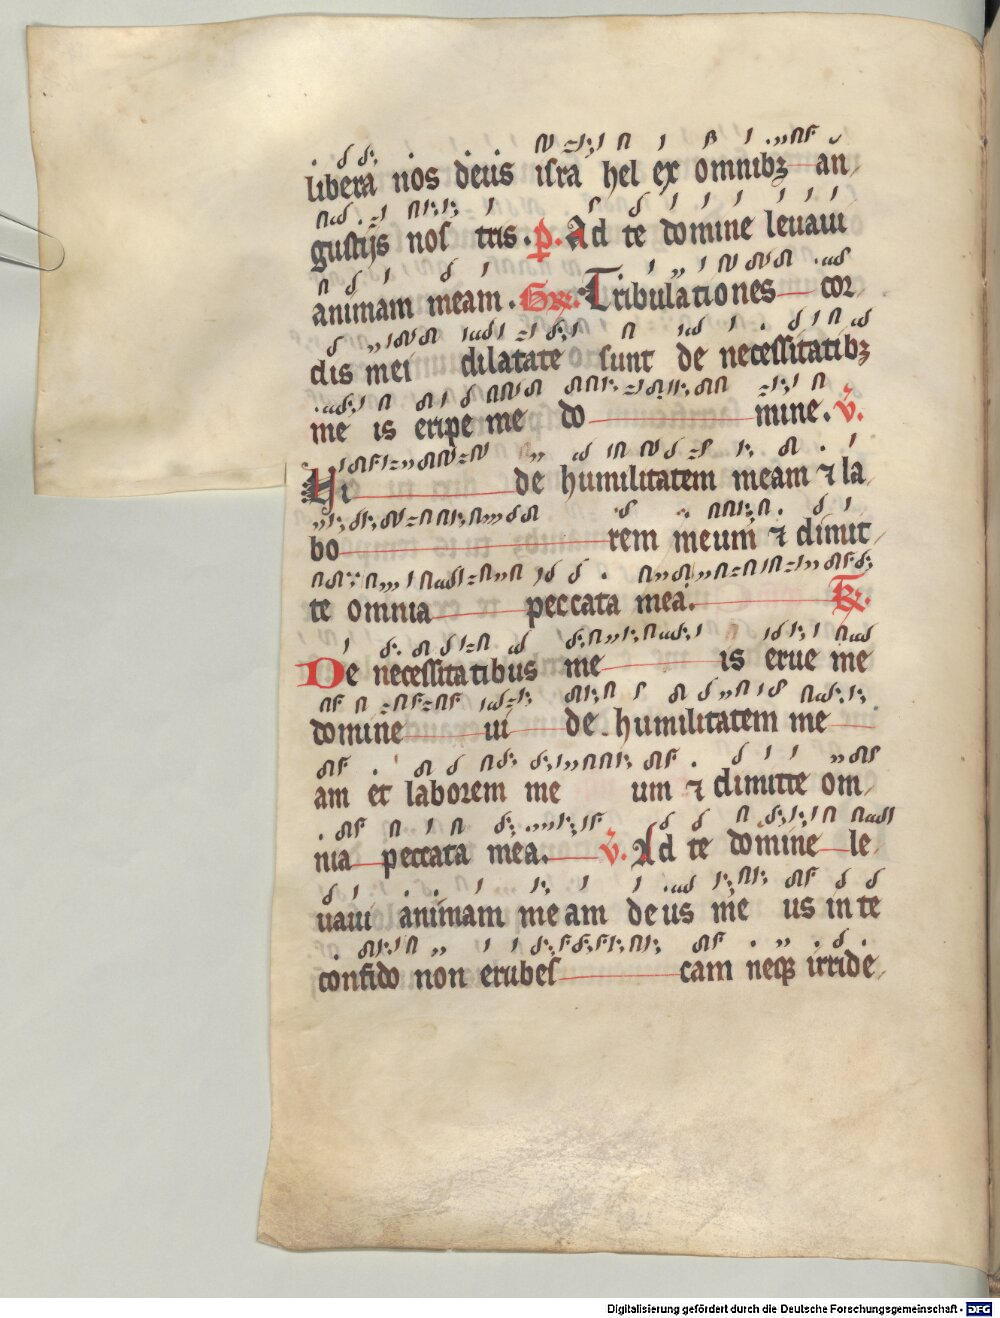 libera nos deus isra hel ex omnibꝫ an
gustijs nos tris. p. Ad te domine leuaui
animam meam. Gr. Tribulationes cor
dis mei dilatate sunt de necessitatibꝫ
me is eripe me do mine. v.
de humilitatem meam ⁊ la
bo rem meum ⁊ dimit
te omnia peccata mea.
De necessitatibus me is erue me
domine ui de humilitatem me
am et laborem me um ⁊ dimitte om
nia peccata mea. v. Ad te domine le
uaui animam meam deus me us in te
confido non erubes cam neqꝫ irride
Digitalisierung gefördert durch die Deutsche Forschungsgemeinschaft - DFG